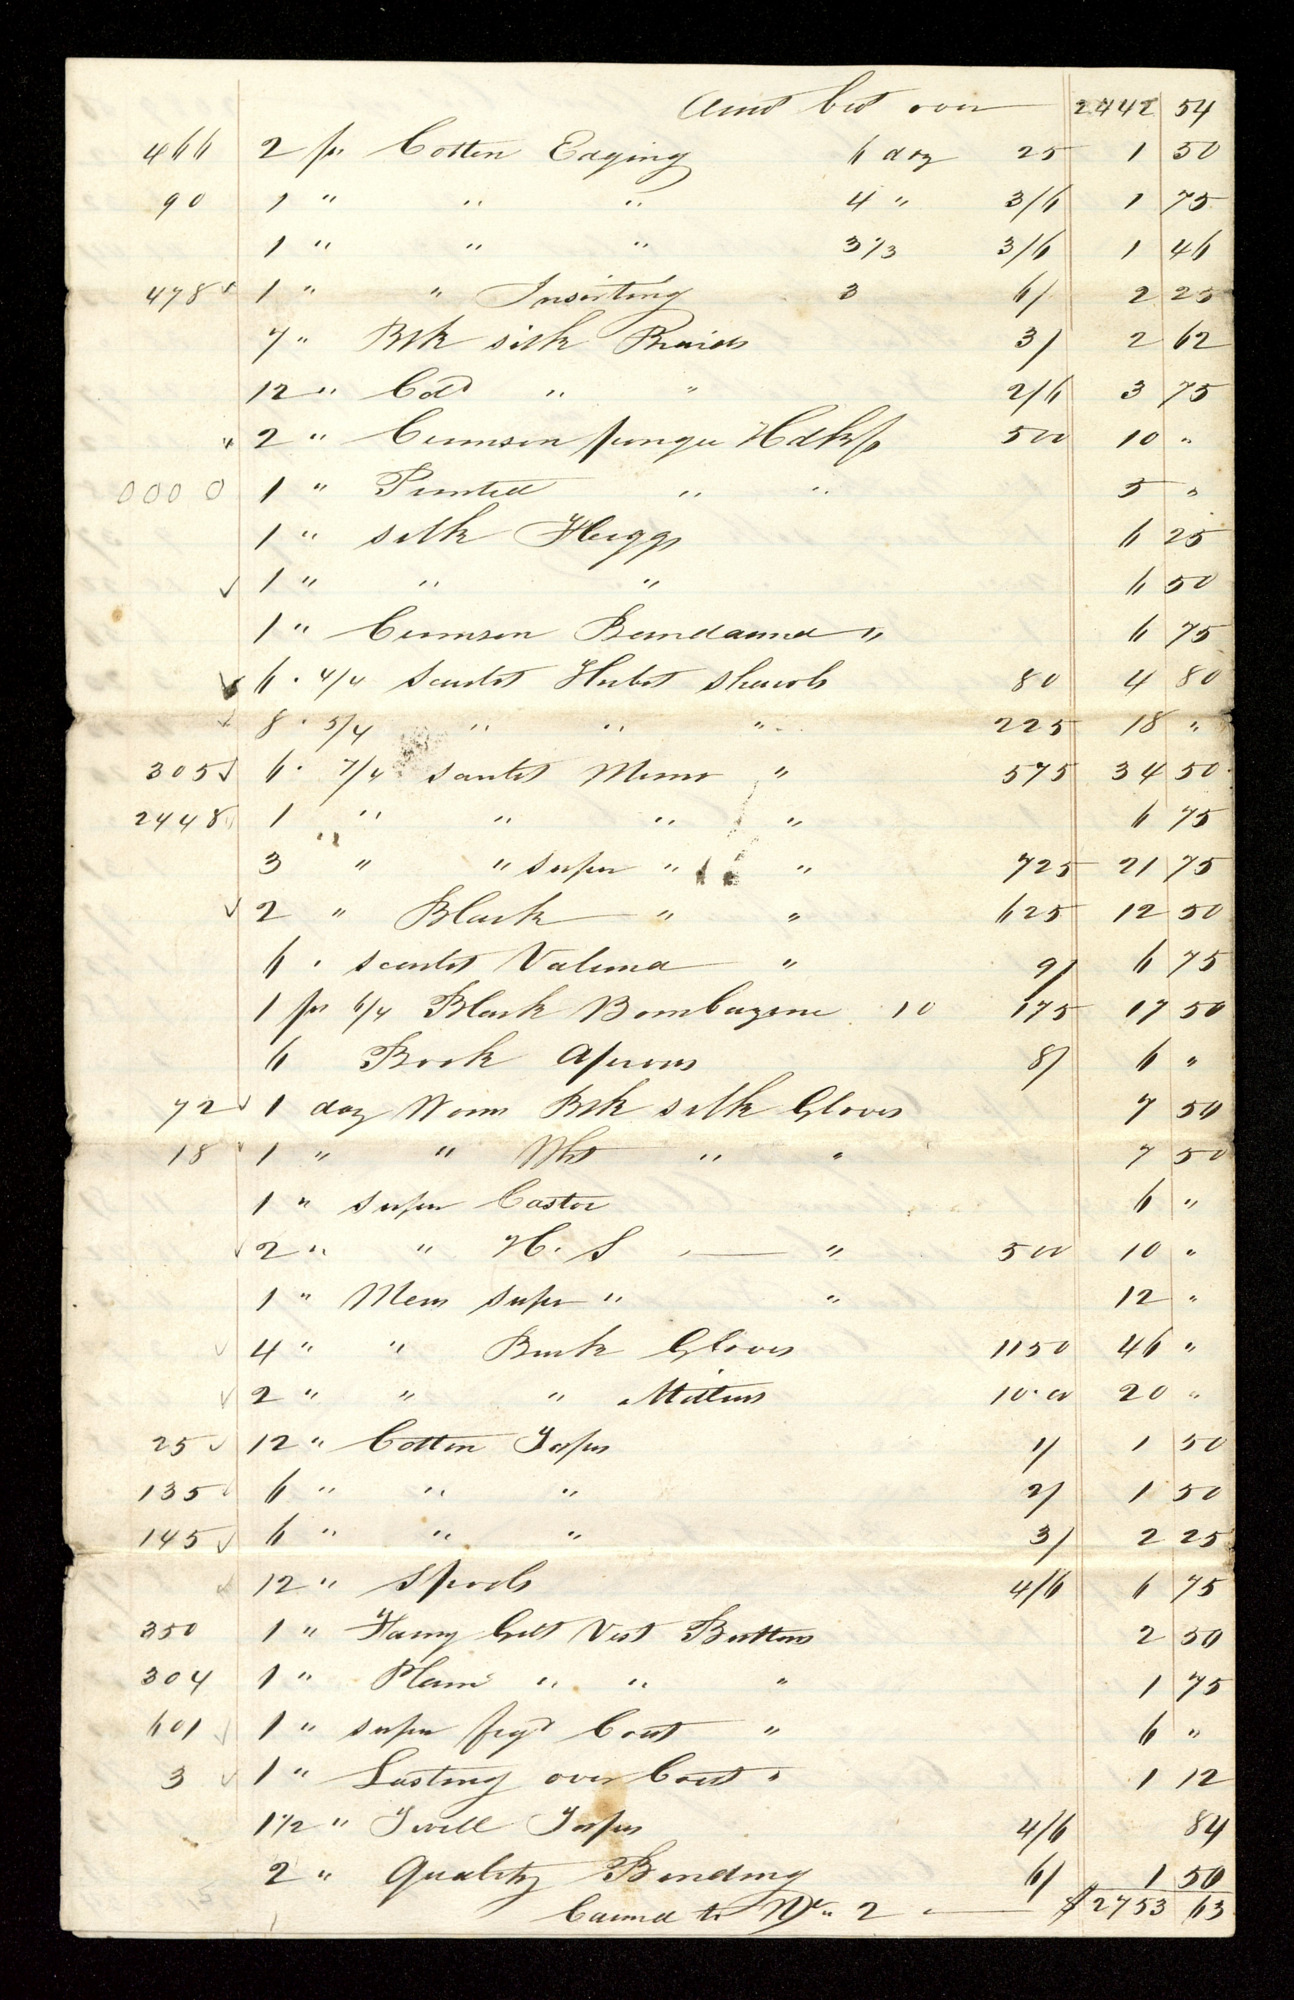 Amt bro't over 2442 54
466 2 ps Cotten Edging 6 doz 25 1 50
90 1 " " " 4 " 3/6 1 75
1 " " " 3 1/3 3/6 1 46
478 1 " " Inserting 3 6/ 2 25
7 " Blk silk Braids 3/ 2 62
12 " Cold " " 2/6 3 75
" 2 " Crimson pongee Hdkfs 500 10 "
0000 1 " Printed " " 5 "
1 " silk Flaggs 6 25
✓ 1 " " " 6 50
1 " Crimson Bandanna " 6 75
✓ 6 . 4/4 Scarlet Thibet Shawls 80 4 80
✓ 8 . 5/4 " " " 225 18 "
305 ✓ 6 . 7/4 Scarlet Merino " 575 34 50
2448 1 " " " " 6 75
3 " " super " " 725 21 75
✓ 2 " Black " " 625 12 50
6 . scarlet Valencia " 9/ 6 75
1 ps 6/4 Black Bombazine 10 175 17 50
6 Book Aprons 8/ 6 "
72 ✓ 1 doz Woms Blk silk Gloves 7 50
18 1 " " Wht " " 7 50
1 " super Castor 6 "
✓ 2 " " H. S " 500 10 "
1 " Mens super " " 12 "
✓ 4 " " Buck Gloves 1150 46 "
✓ 2 " " " Mittens 10.00 20 "
25 ✓ 12 " Cotten Tapes 1/ 1 50
135 ✓ 6 " " " 2/ 1 50
145 ✓ 6 " " " 3/ 2 25
✓ 12 " Spools 4/6 6 75
350 1 " Fancy Gilt Vest Buttons 2 50
304 1 " Plain " " " 1 75
601 ✓ 1 " super figd Coat " 6 "
3 ✓ 1 " Lasting over Coat " 1 12
1 1/2 " Twill Tapes 4/6 84
2 " Quality Binding 6/ 1 50
Carried to No. 2 $2753 63